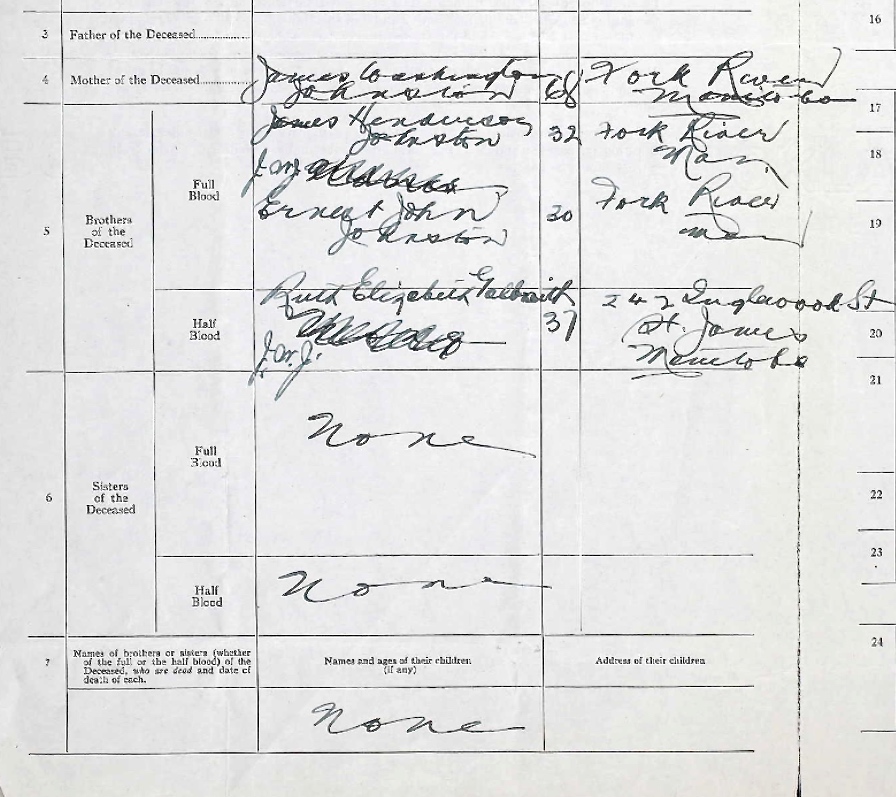 3 Father of the Deceased
4 Mother of the Deceased
James Washington
Johnston 68
Fork River
Manitoba
5 Brothers of the Deceased
Full Blood
James Henderson
Johnston 32
Fork River
Man
J.W.J.
Ernest John
Johnston 30
Fork River
Man
Half Blood
Ruth Elizabeth Galbraith
37
242 Inglewood St
St. James
Manitoba
J.W.J.
6 Sisters of the Deceased
Full Blood
None
Half Blood
None
7 Names of brothers or sisters (whether
of the full or the half blood) of the
Deceased, who are dead and date of
death of each.
Names and ages of their children
(if any)
Address of their children
None
16
17
18
19
20
21
22
23
24